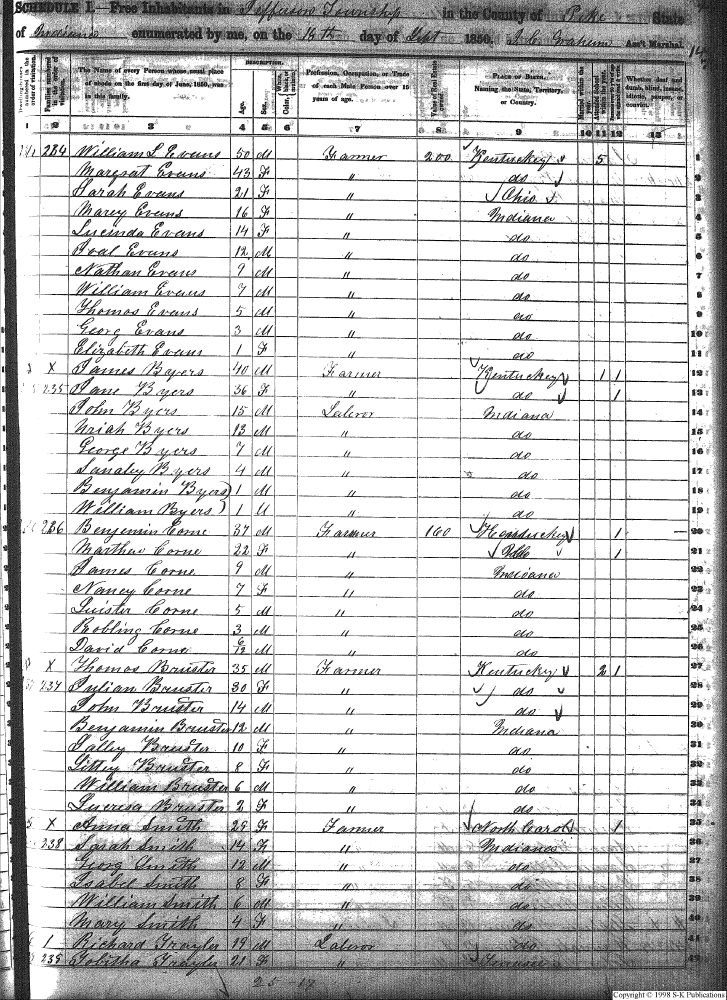 SCHEDULE I.—Free Inhabitants in Jefferson Township in the County of Pike State
of Indiana enumerated by me, on the 18th day of Sept 1850. J. C. Graham Ass't Marshal.
The Name of every Person whose usual place of abode on the first day of June, 1850, was in this family.
DESCRIPTION.
Age.
Sex.
Profession, Occupation, or Trade of each Male Person over 15 years of age.
Value of Real Estate owned.
PLACE OF BIRTH. Naming the State, Territory, or Country.
Married within the year.
Whether deaf and dumb, blind, insane, idiotic, pauper, or convict.
1 2 3 4 5 6 7 8 9 10 11 12 13
284 William L Evans 50 M Farmer 200 Kentucky 5 1
Margrat Evans 43 F " do 2
Sarah Evans 21 F " Ohio 3
Marey Evans 16 F " Indiana 4
Lucinda Evans 14 F " do 5
Joal Evans 12 M " do 6
Nathan Evans 9 M " do 7
William Evans 7 M " do 8
Thomas Evans 5 M " do 9
Georg Evans 3 M " do 10
Elizabeth Evans 1 F " do 11
X James Byers 40 M Farmer Kentucky 1 1 12
235 Jane Byers 36 F " do 1 13
John Byers 15 M Labror Indiana 14
Uriah Byers 13 M " do 15
George Byers 7 M " do 16
Byers 4 M " do 17
Benjamin Byers 1 M " do 18
William Byers 1 M " do 19
286 Benjemin Corne 37 M Farmer 160 Kentucky 1 20
Marthew Corne 22 F " 1 21
James Corne 9 M " Indiana 22
Nancy Corne 7 F " do 23
Luister Corne 5 M " do 24
Robling Corne 3 M " do 25
David Corne 6/12 M " do 26
X Thomas Bruster 35 M Farmer Kentucky 2 1 27
237 Julian Bruster 30 F " do 28
John Bruster 14 M " do 29
Benjamin Bruster 12 M " Indiana 30
Salley Bruster 10 F " do 31
Bruster 8 F " do 32
William Bruster 6 M " do 33
Bruster 2 F " do 34
X Anna Smith 29 F Farmer North Carol 1 35
238 Sarah Smith 14 F " Indiana 36
Georg Smith 12 M " do 37
Isabel Smith 8 F " do 38
William Smith 6 M " do 39
Mary Smith 4 F " do 40
1 Richard Trayler 19 M Labror do 41
239 Tobitha Trayler 21 F " 42
25 17
Copyright © 1998 S-K Publications